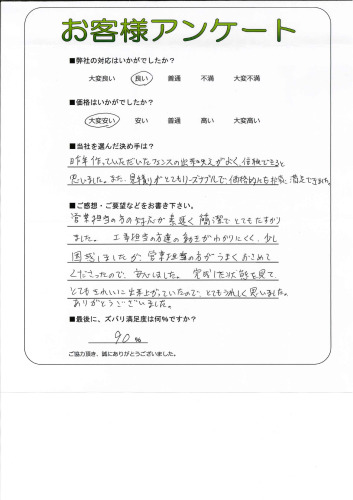 お客様アンケート
■弊社の対応はいかがでしたか？
大変良い 良い 普通 不満 大変不満
■価格はいかがでしたか？
大変安い 安い 普通 高い 大変高い
■当社を選んだ決め手は？
昨年作っていただいたフェンスの出来映えがよく、信頼できると
思いました。また、見積りがとてもリーズナブルで、価格的にも 満足できました。
■ご感想・ご要望などをお書き下さい。
営業担当の方の対応が素早く簡潔でとてもたすかり
ました。工事担当の方達の動きがわかりにくく、少し
困惑しましたが営業担当の方がうまくおさめて
くださったので、安心しました。完成した状態を見て、
とてもきれいに出来上がっていたので、とてもうれしく思いました。
ありがとうございました。
■最後に、ズバリ満足度は何％ですか？
90 ％
ご協力頂き、誠にありがとうございました。